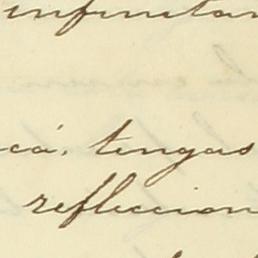 infinitam
ca, tengas
refleccion